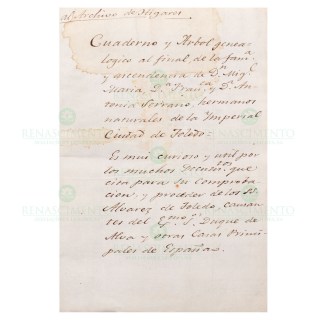 al Archivo de Higares
Cuaderno y Arbol genea-
logico al final, de la fam.ª
y ascendencia de D.n Mig.l
Maria, D.ª Fran.ca y D.ª An-
tonia Serrano, hermanos
naturales de la Imperial
Ciudad de Toledo=
Es mui curioso y util por
los muchos Docum.tos que
cita para su comproba-
cion, y proceder de los S.es
Alvarez de Toledo, causan-
tes del Exmo. S.r Duque de
Alva y otras Casas Princi-
pales de España.
RENASCIMENTO
RENASCIMENTO
RENASCIMENTO